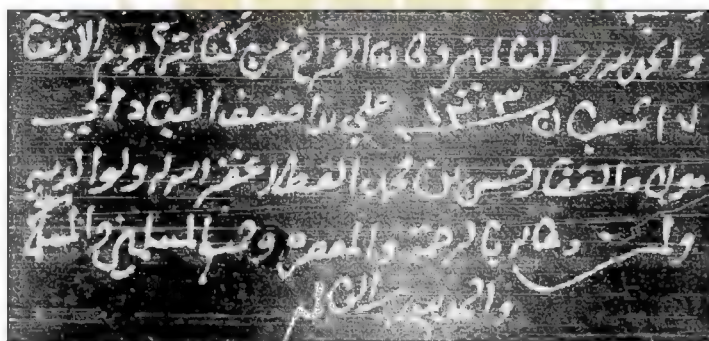 والحمد لله رب العالمين وكان الفراغ من كتابته يوم الاربعاء
شعبان ١٣٠٣ على يد اضعف العباد الى
مولاه الغفار حسن بن محمد العطار غفر الله له ولوالديه
ولمن دعا لهم بالرحمة والمغفرة وجميع المسلمين
والحمد لله رب العالمين